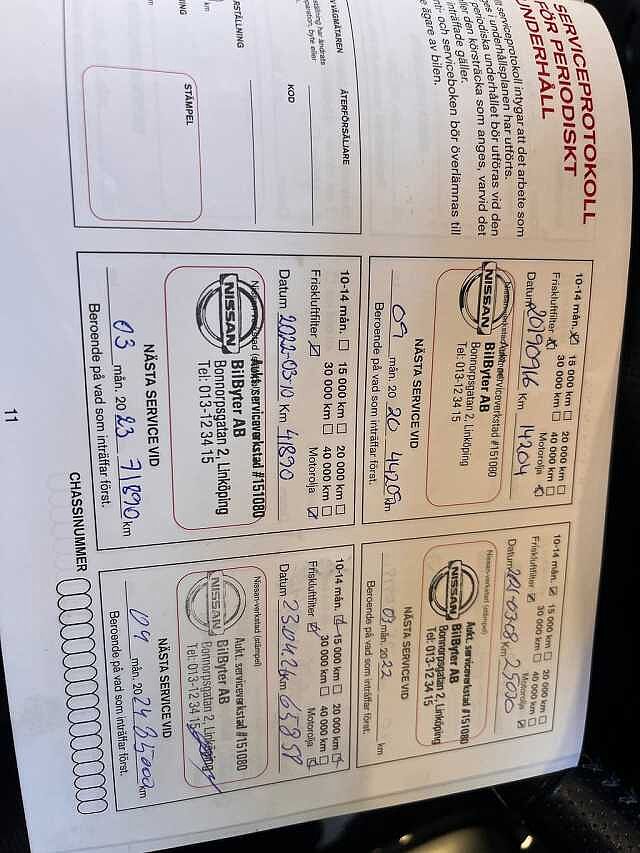 SERVICEPROTOKOLL
FÖR PERIODISKT
UNDERHÅLL
serviceprotokoll intygar att det arbete som
i underhållsplanen har utförts.
periodiska underhållet bör utföras vid den
eller den körsträcka som anges, varvid det
inträffade gäller.
och serviceboken bör överlämnas till
ägare av bilen.
VÄGMÄTAREN
ÅTERFÖRSÄLJARE
KOD
STÄMPEL
10-14 mån. 15 000 km 20 000 km
30 000 km 40 000 km
Friskluftfilter Motorolja
Datum 20190916 Km 14204
Nissan-verkstad
Aukt. serviceverkstad #151080
NISSAN
BilByter AB
Bonnorpsgatan 2, Linköping
Tel: 013-12 34 15
NÄSTA SERVICE VID
09 mån. 20 20 44204 km
Beroende på vad som inträffar först.
10-14 mån. 15 000 km 20 000 km
30 000 km 40 000 km
Friskluftfilter Motorolja
Datum Km
Nissan-verkstad (stämpel)
Aukt. serviceverkstad #151080
NISSAN
BilByter AB
Bonnorpsgatan 2, Linköping
Tel: 013-12 34 15
NÄSTA SERVICE VID
03 mån. 20 22 km
Beroende på vad som inträffar först.
10-14 mån. 15 000 km 20 000 km
30 000 km 40 000 km
Friskluftfilter Motorolja
Datum 2022-03-10 Km 41890
Nissan-verkstad
Aukt. serviceverkstad #151080
NISSAN
BilByter AB
Bonnorpsgatan 2, Linköping
Tel: 013-12 34 15
NÄSTA SERVICE VID
03 mån. 20 23 71890 km
Beroende på vad som inträffar först.
10-14 mån. 15 000 km 20 000 km
30 000 km 40 000 km
Friskluftfilter Motorolja
Datum Km 65858
Nissan-verkstad (stämpel)
Aukt. serviceverkstad #151080
NISSAN
BilByter AB
Bonnorpsgatan 2, Linköping
Tel: 013-12 34 15
NÄSTA SERVICE VID
04 mån. 20 24 km
Beroende på vad som inträffar först.
CHASSINUMMER
11